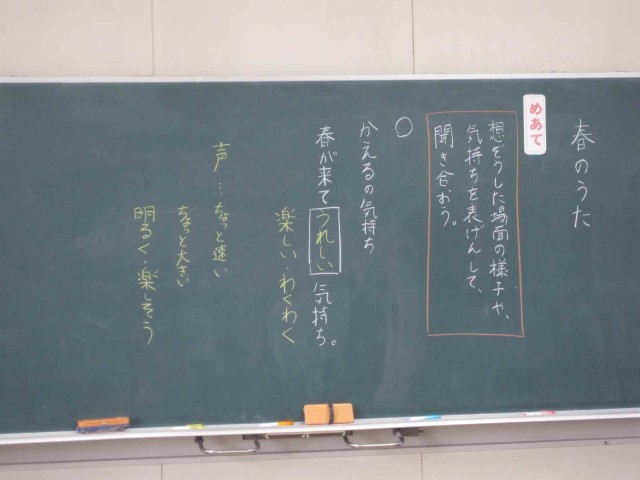 春のうた
めあて
想ぞうした場面の様子や、
気持ちを表げんして、
聞き合おう。
○
かえるの気持ち
春が来てうれしい気持ち。
楽しい・わくわく
声…ちょっと速い
ちょっと大きい
明るく・楽しそう